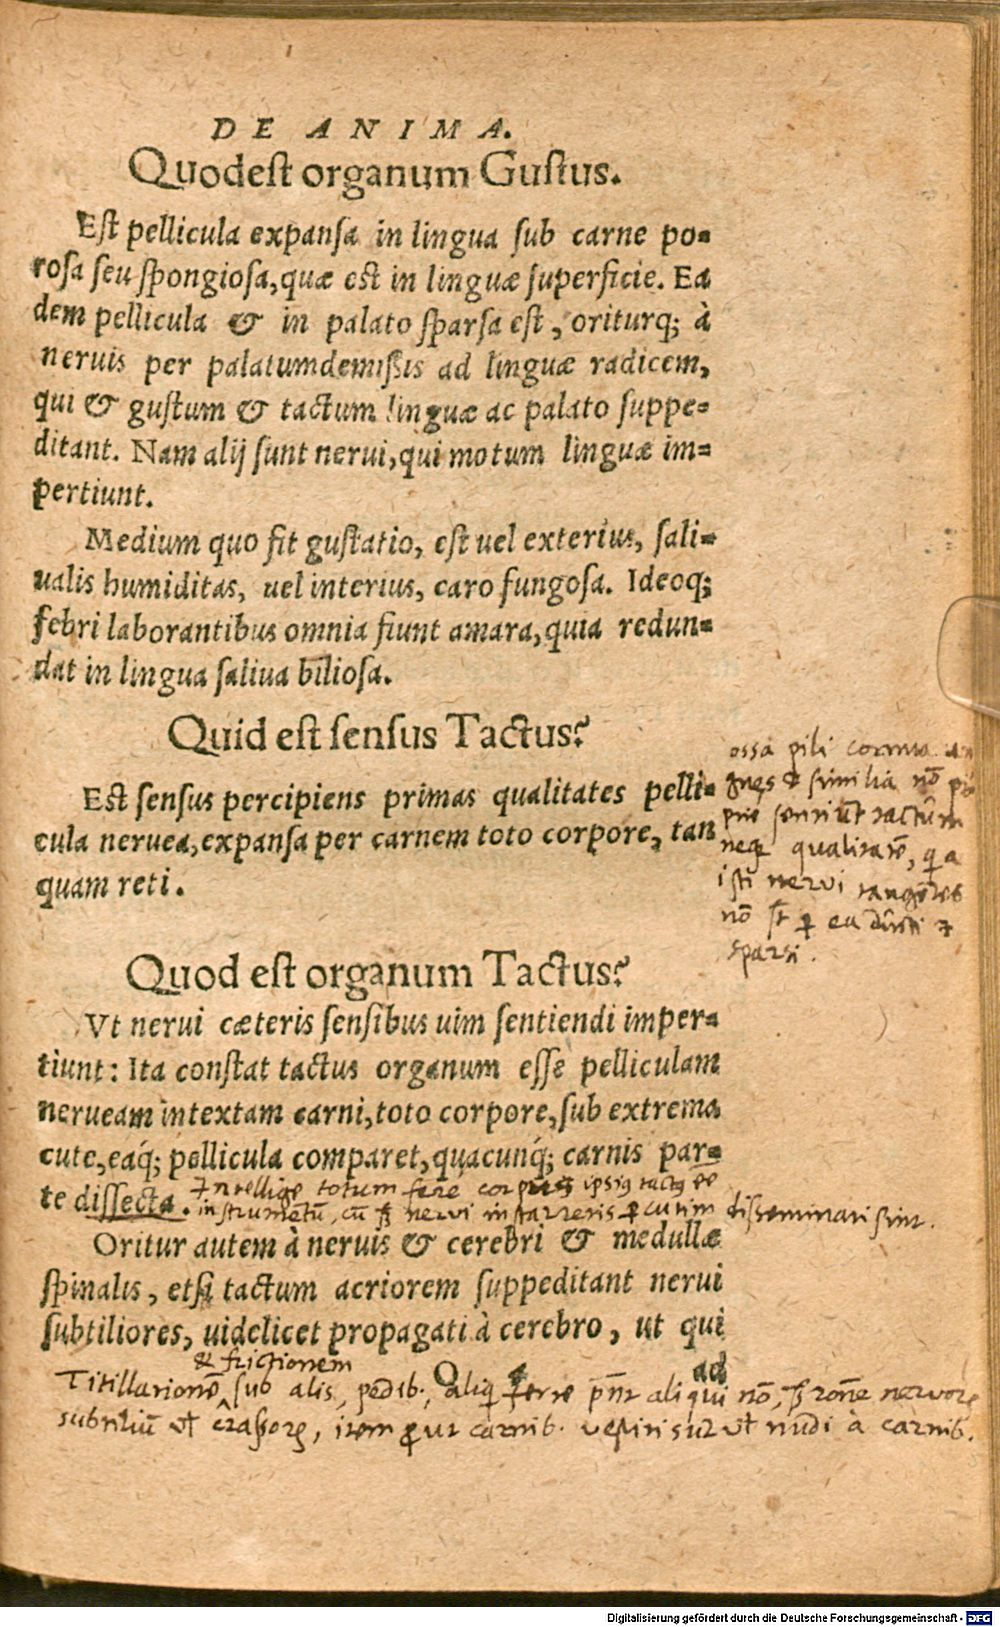 DE ANIMA.
Quodest organum Gustus.
Est pellicula expansa in lingua sub carne po-
rosa seu spongiosa, quæ est in linguæ superficie. Ea
dem pellicula & in palato sparsa est, oriturq; à
neruis per palatumdemissis ad linguæ radicem,
qui & gustum & tactum linguæ ac palato suppe-
ditant. Nam alij sunt nerui, qui motum linguæ im-
pertiunt.
Medium quo fit gustatio, est uel exterius, sali-
ualis humiditas, uel interius, caro fungosa. Ideoq;
febri laborantibus omnia fiunt amara, quia redun-
dat in lingua saliua biliosa.
Quid est sensus Tactus?
Est sensus percipiens primas qualitates pelli-
cula neruea, expansa per carnem toto corpore, tan
quam reti.
ossa pili cornua un
gues & similia nō
prie sentiūt tactūm
neqꝫ qualitatē, qa
isti nervi tangētes
nō st ꝑ ea
sparsi.
Quod est organum Tactus?
Vt nerui cæteris sensibus uim sentiendi imper-
tiunt: Ita constat tactus organum esse pelliculam
nerueam intextam carni, toto corpore, sub extrema
cute, eaq́; pellicula comparet, quacunq́; carnis par-
te dissecta.
Intellige totum fere corpus ipsius tactus ēe
instrumētū, cū nervi instar retis ꝑ cutim disseminari sint.
Oritur autem à neruis & cerebri & medullæ
spinalis, etsi tactum acriorem suppeditant nerui
subtiliores, uidelicet propagati à cerebro, ut qui
O 4 ad
& frictionem
Titillationē sub alis, pedib., aliq ferre pñt aliqui nō, rōne nervorꝫ
subtiliū vl crassiorꝫ, item prout carnib. vestiti sut vl nudi à carnib.
Digitalisierung gefördert durch die Deutsche Forschungsgemeinschaft - DFG